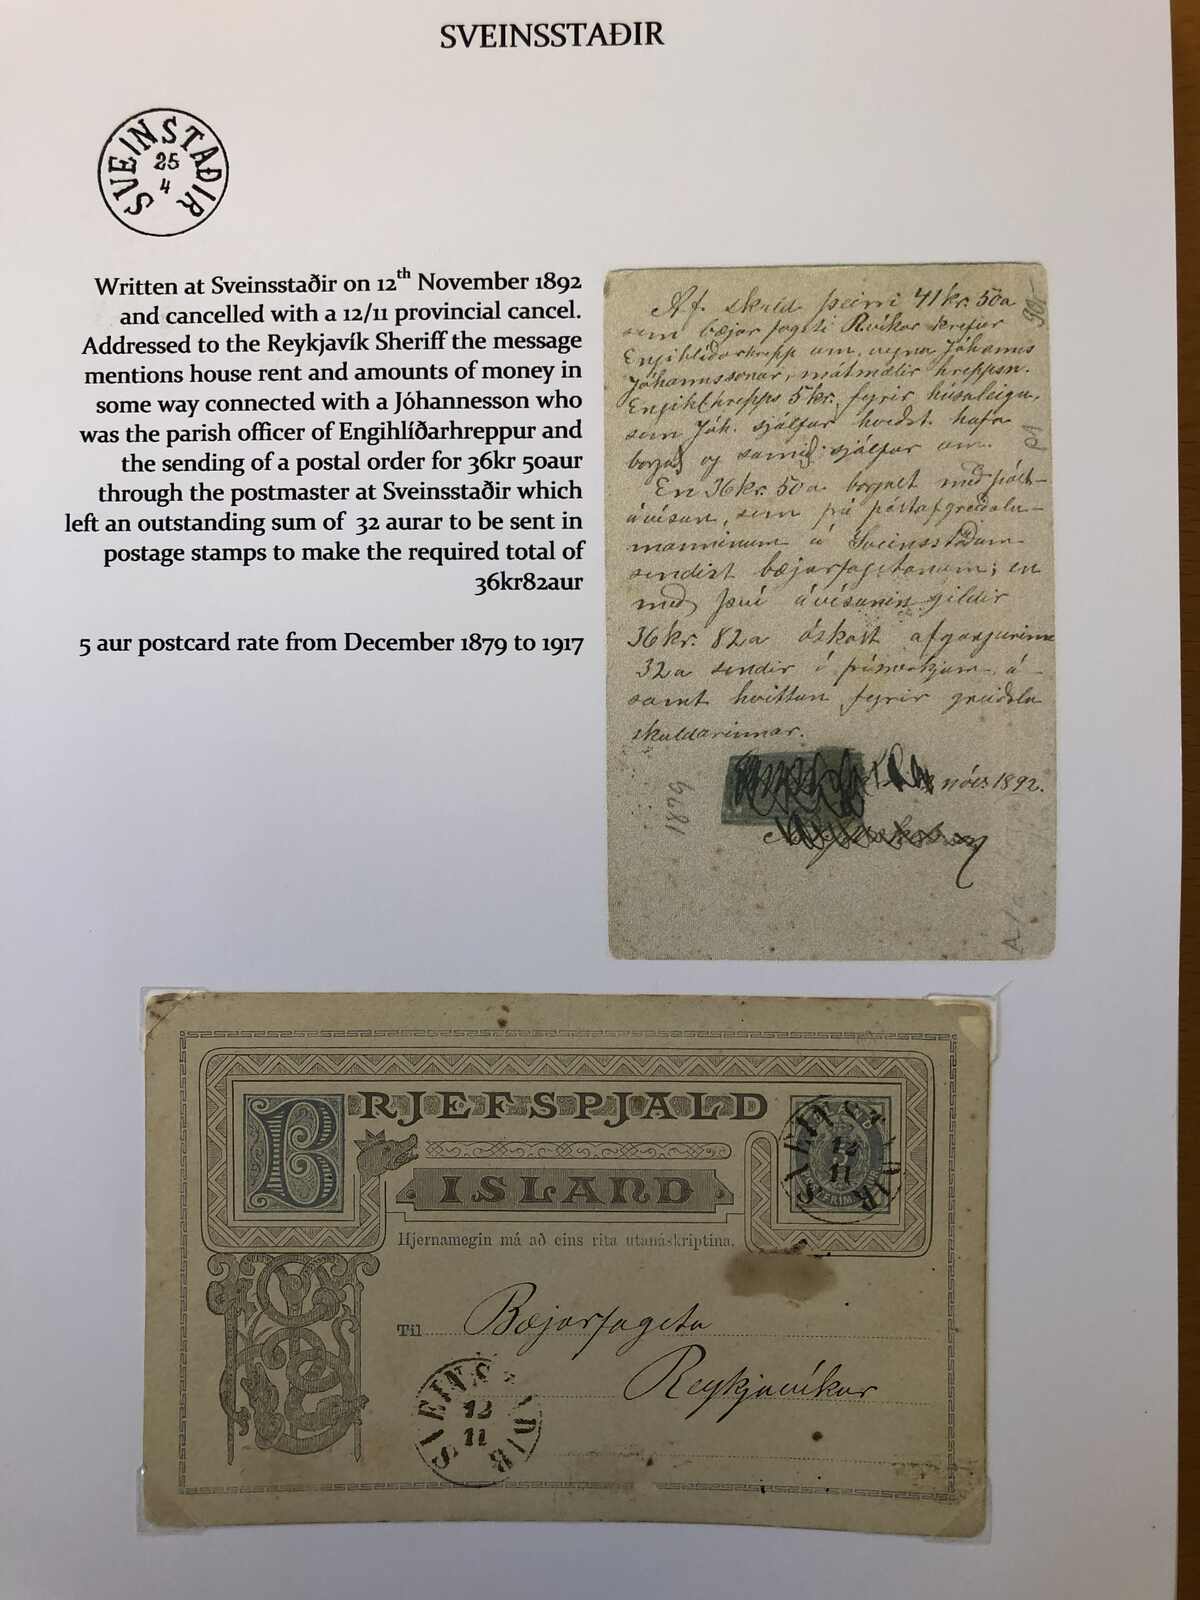 SVEINSSTAÐIR
SVEINSTAÐIR
25
4
Written at Sveinsstaðir on 12th November 1892
and cancelled with a 12/11 provincial cancel.
Addressed to the Reykjavík Sheriff the message
mentions house rent and amounts of money in
some way connected with a Jóhannesson who
was the parish officer of Engihlíðarhreppur and
the sending of a postal order for 36kr 50aur
through the postmaster at Sveinsstaðir which
left an outstanding sum of 32 aurar to be sent in
postage stamps to make the required total of
36kr82aur
5 aur postcard rate from December 1879 to 1917
Af skuld þeirri 41 kr. 50a
sem bæjarfógeti Rvíkur krefur
Engihlíðarhrepp um, vegna Jóhanns
5 kr. fyrir húsaleigu,
sem Jóh. sjálfur kveðst hafa
borgað og samið sjálfur um.
En 36 kr. 50a borgast með póst-
ávísun, sem frá póstafgreiðslu-
manninum á Sveinsstöðum
sendist bæjarfógetanum; en
með því ávísunin gildir
36 kr. 82a óskast afgangurinn
32a sendir í frímerkjum, á-
samt kvittun fyrir greiðslu
skuldarinnar.
nóv. 1892.
1879
BRJEFSPJALD
ISLAND
Hjernamegin má að eins rita utanáskriptina.
SVEINSTAÐIR
12
11
5
Til Bæjarfógeta
Reykjavíkur
SVEINS ÐIR
12
11